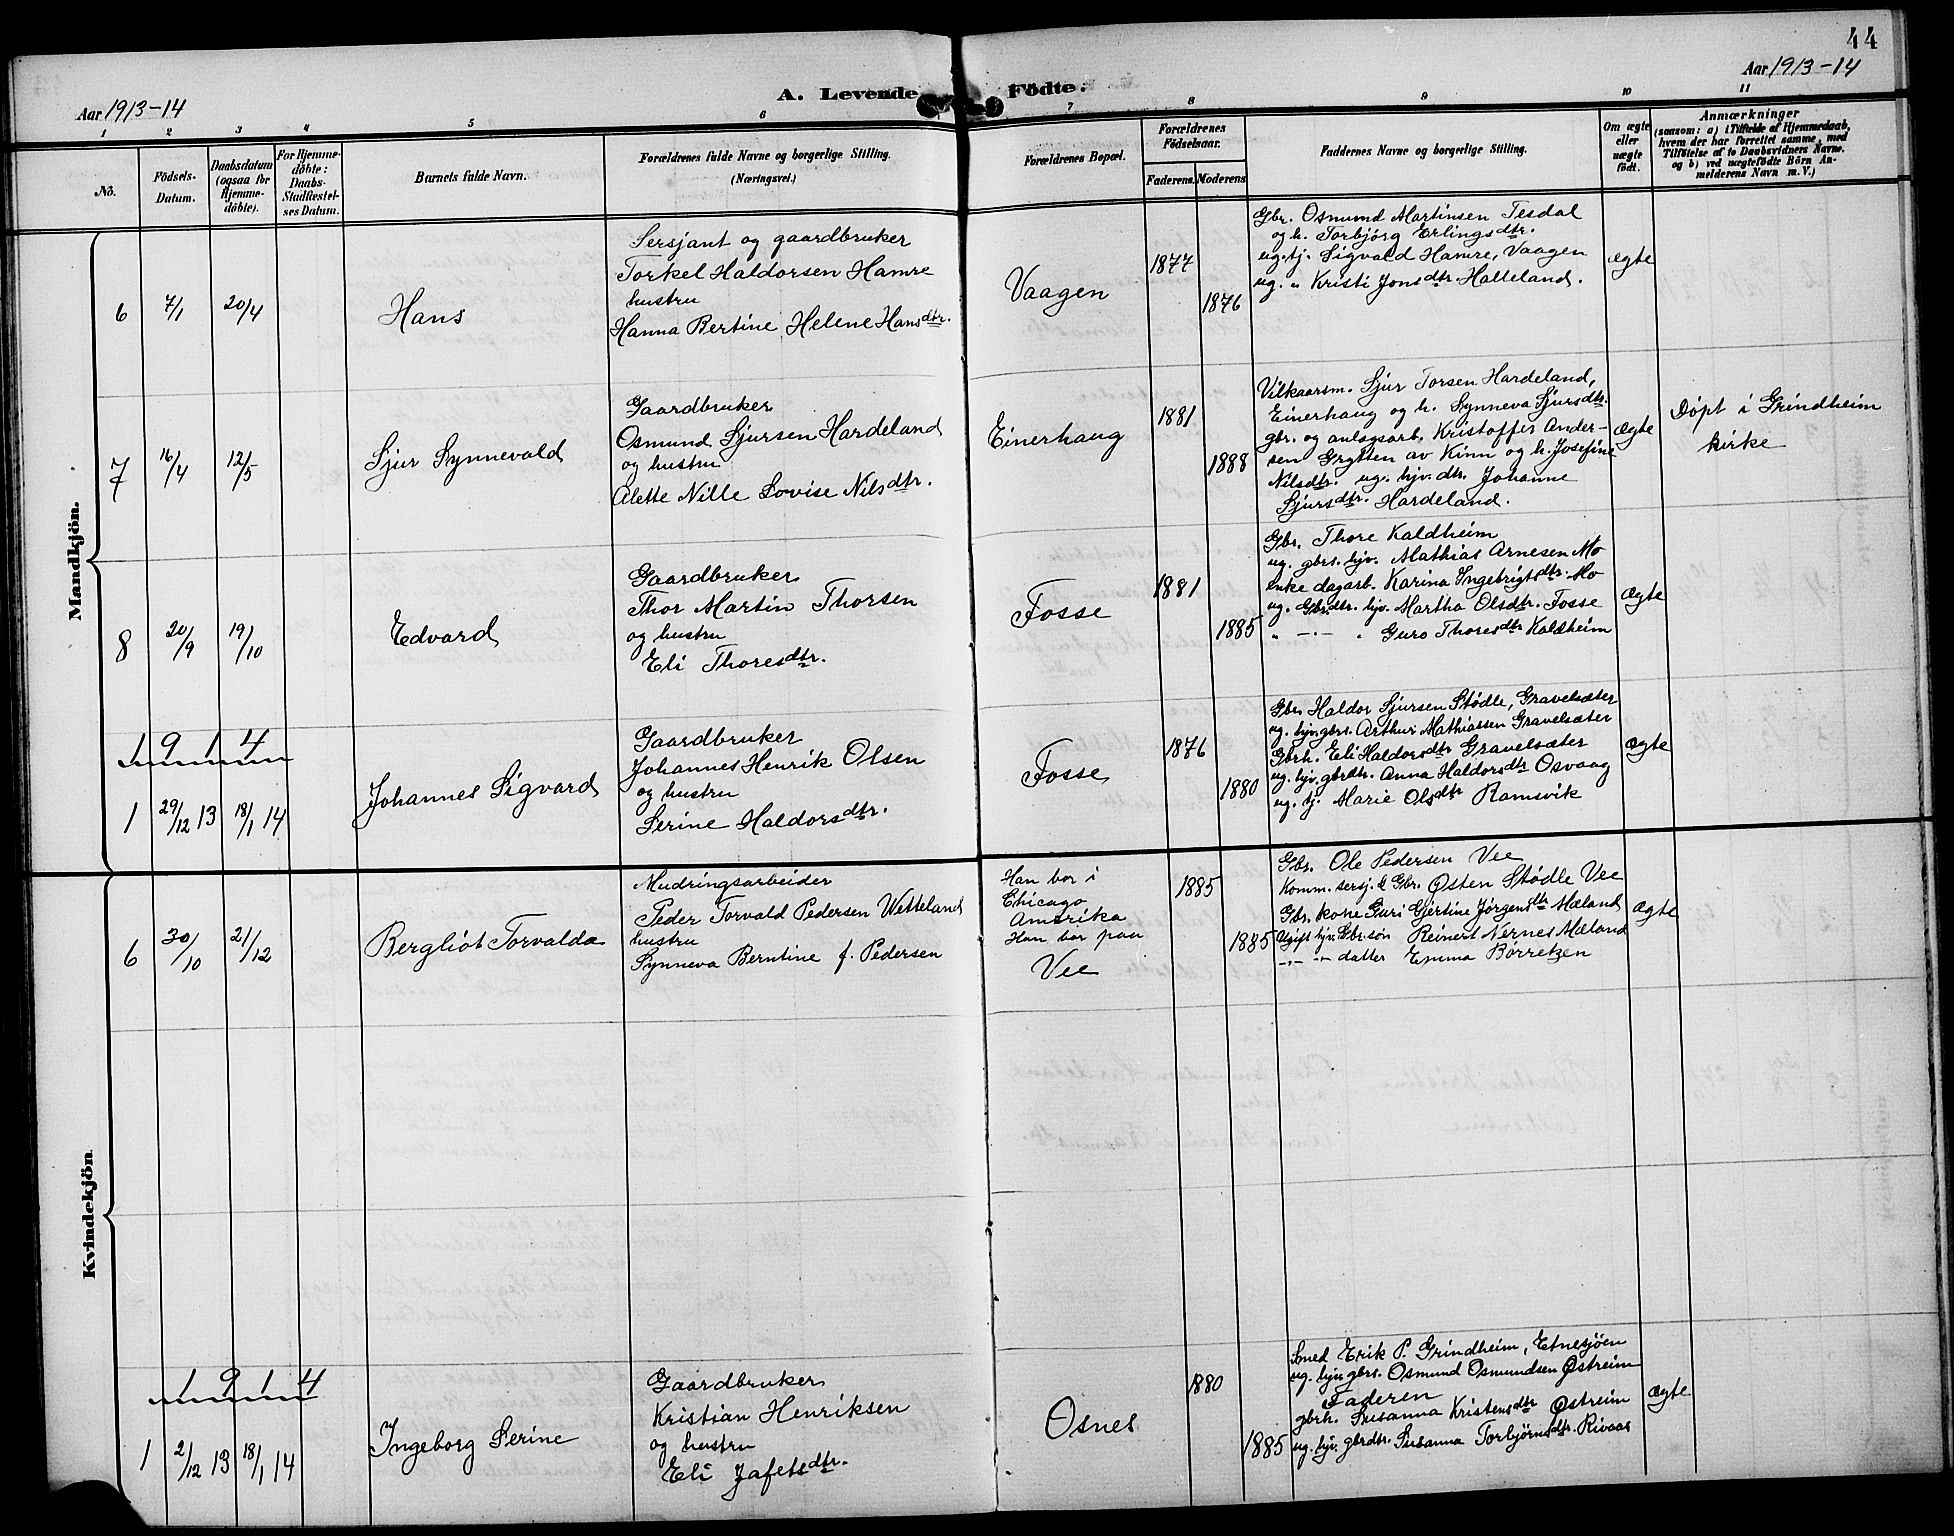 44
Aar 1913-14
A. Levende Födte.
Aar 1913-14
1 2 3 4 5 6 7 8 9 10 11
No.
Födsels-
Datum.
Daabsdatum
(ogsaa for
Hjemme-
döbte).
For Hjemme-
döbte:
Daabs-
Stadfæstel-
ses Datum.
Barnets fulde Navn.
Forældrenes fulde Navne og borgerlige Stilling.
(Næringsvei.)
Forældrenes Bopæl.
Forældrenes
Födselsaar.
Faderens. Moderens
Faddernes Navne og borgerlige Stilling.
Om ægte
eller
uægte
födt.
Anmærkninger
(saasom: a) i Tilfælde af Hjemmedaab,
hvem der har forrettet samme, med
Tilföielse af to Daabsvidners Navne,
og b) ved uægtefödte Börn An-
melderens Navn m. V.)
Mandkjön.
6 7/1 20/4
Hans
Sersjant og gaardbruker
Torkel Haldorsen Hamre
hustru
Hanna Bertine Helene Hansdtr.
Vaagen
1877
1876
Gbr. Osmund Martinsen Tesdal
og h. Torbjörg Erlingsdtr.
ug. tj. Sigvald Hamre, Vaagen
ug. " Kristi Jonsdtr. Halleland.
ægte
7 16/4 12/5
Sjur Synnevald
Gaardbruker
Osmund Sjursen Hardeland
og hustru
Alette Nille Lovise Nilsdtr.
Einerhaug
1881
1888
Vilkaarsm. Sjur Torsen Hardeland,
Einerhaug og h. Synneva Sjursdtr.
gbr. og anlagsarb. Kristoffer Ander-
sen Grytten av Kinn og h. Josefine
Nilsdtr. ug. hjv. dtr. Johanne
Sjursdtr. Hardeland.
ægte
Döpt i Grindheim
kirke
8 20/9 19/10
Edvard
Gaardbruker
Thor Martin Thorsen
og hustru
Eli Thoresdtr.
Fosse
1881
1885
Gbr. Thore Kaldheim
ug. gbrs. hjv. Mathias Arnesen Mo
enke dagarb. Karina Ingebrigtsdtr. Mo
ug. Gbrdtr. hjv. Martha Olsdtr. Fosse
" -"- " Guro Thoresdtr Kaldheim
ægte
1914
1 29/12 13 18/1 14
Johannes Sigvard
Gaardbruker
Johannes Henrik Olsen
og hustru
Serine Haldorsdtr.
Fosse
1876
1880
Gbr. Haldor Sjursen Stødle, Gravelsæter
ug. hjv. gbrs. Arthur Mathiassen Gravelsæter
Gbrh. Eli Haldorsdtr Gravelsæter
ug. hjv. gbrdtr. Anna Haldorsdtr Osvaag
ug. tj. Marie Olsdtr Ramsvik
ægte
Kvindekjön
6 30/10 21/12
Bergliot Torvalda
Mudringsarbeider
Peder Torvald Pedersen Wetteland
hustru
Synneva Berntine f. Pedersen
Han bor i
Chicago
Amerika
Hun bor paa
Vee
1885
1885
Gbr. Ole Pedersen Vee
Komm. sersj. & Gbr. Østen Stødle Vee
Gbr. kone Guri Gjertine Jørgensdtr Mæland
Ugift hjv. Gbr.søn Reinert Nernes Mæland
-"- "- datter Emma Børretzen
ægte
1914
1 2/12 13 18/1 14
Ingeborg Serine
Gaardbruker
Kristian Henriksen
og hustru
Eli Jafetsdtr.
Osnes
1880
1885
Smed Erik P. Grindheim, Etnesjøen
ug. hjv. gbrs. Osmund Osmundsen Østreim
Faderen
gbrh. Susanna Kristensdtr Østreim
ug. hjv. gbrdtr. Susanna Torbjørnsdtr. Rivaas
ægte